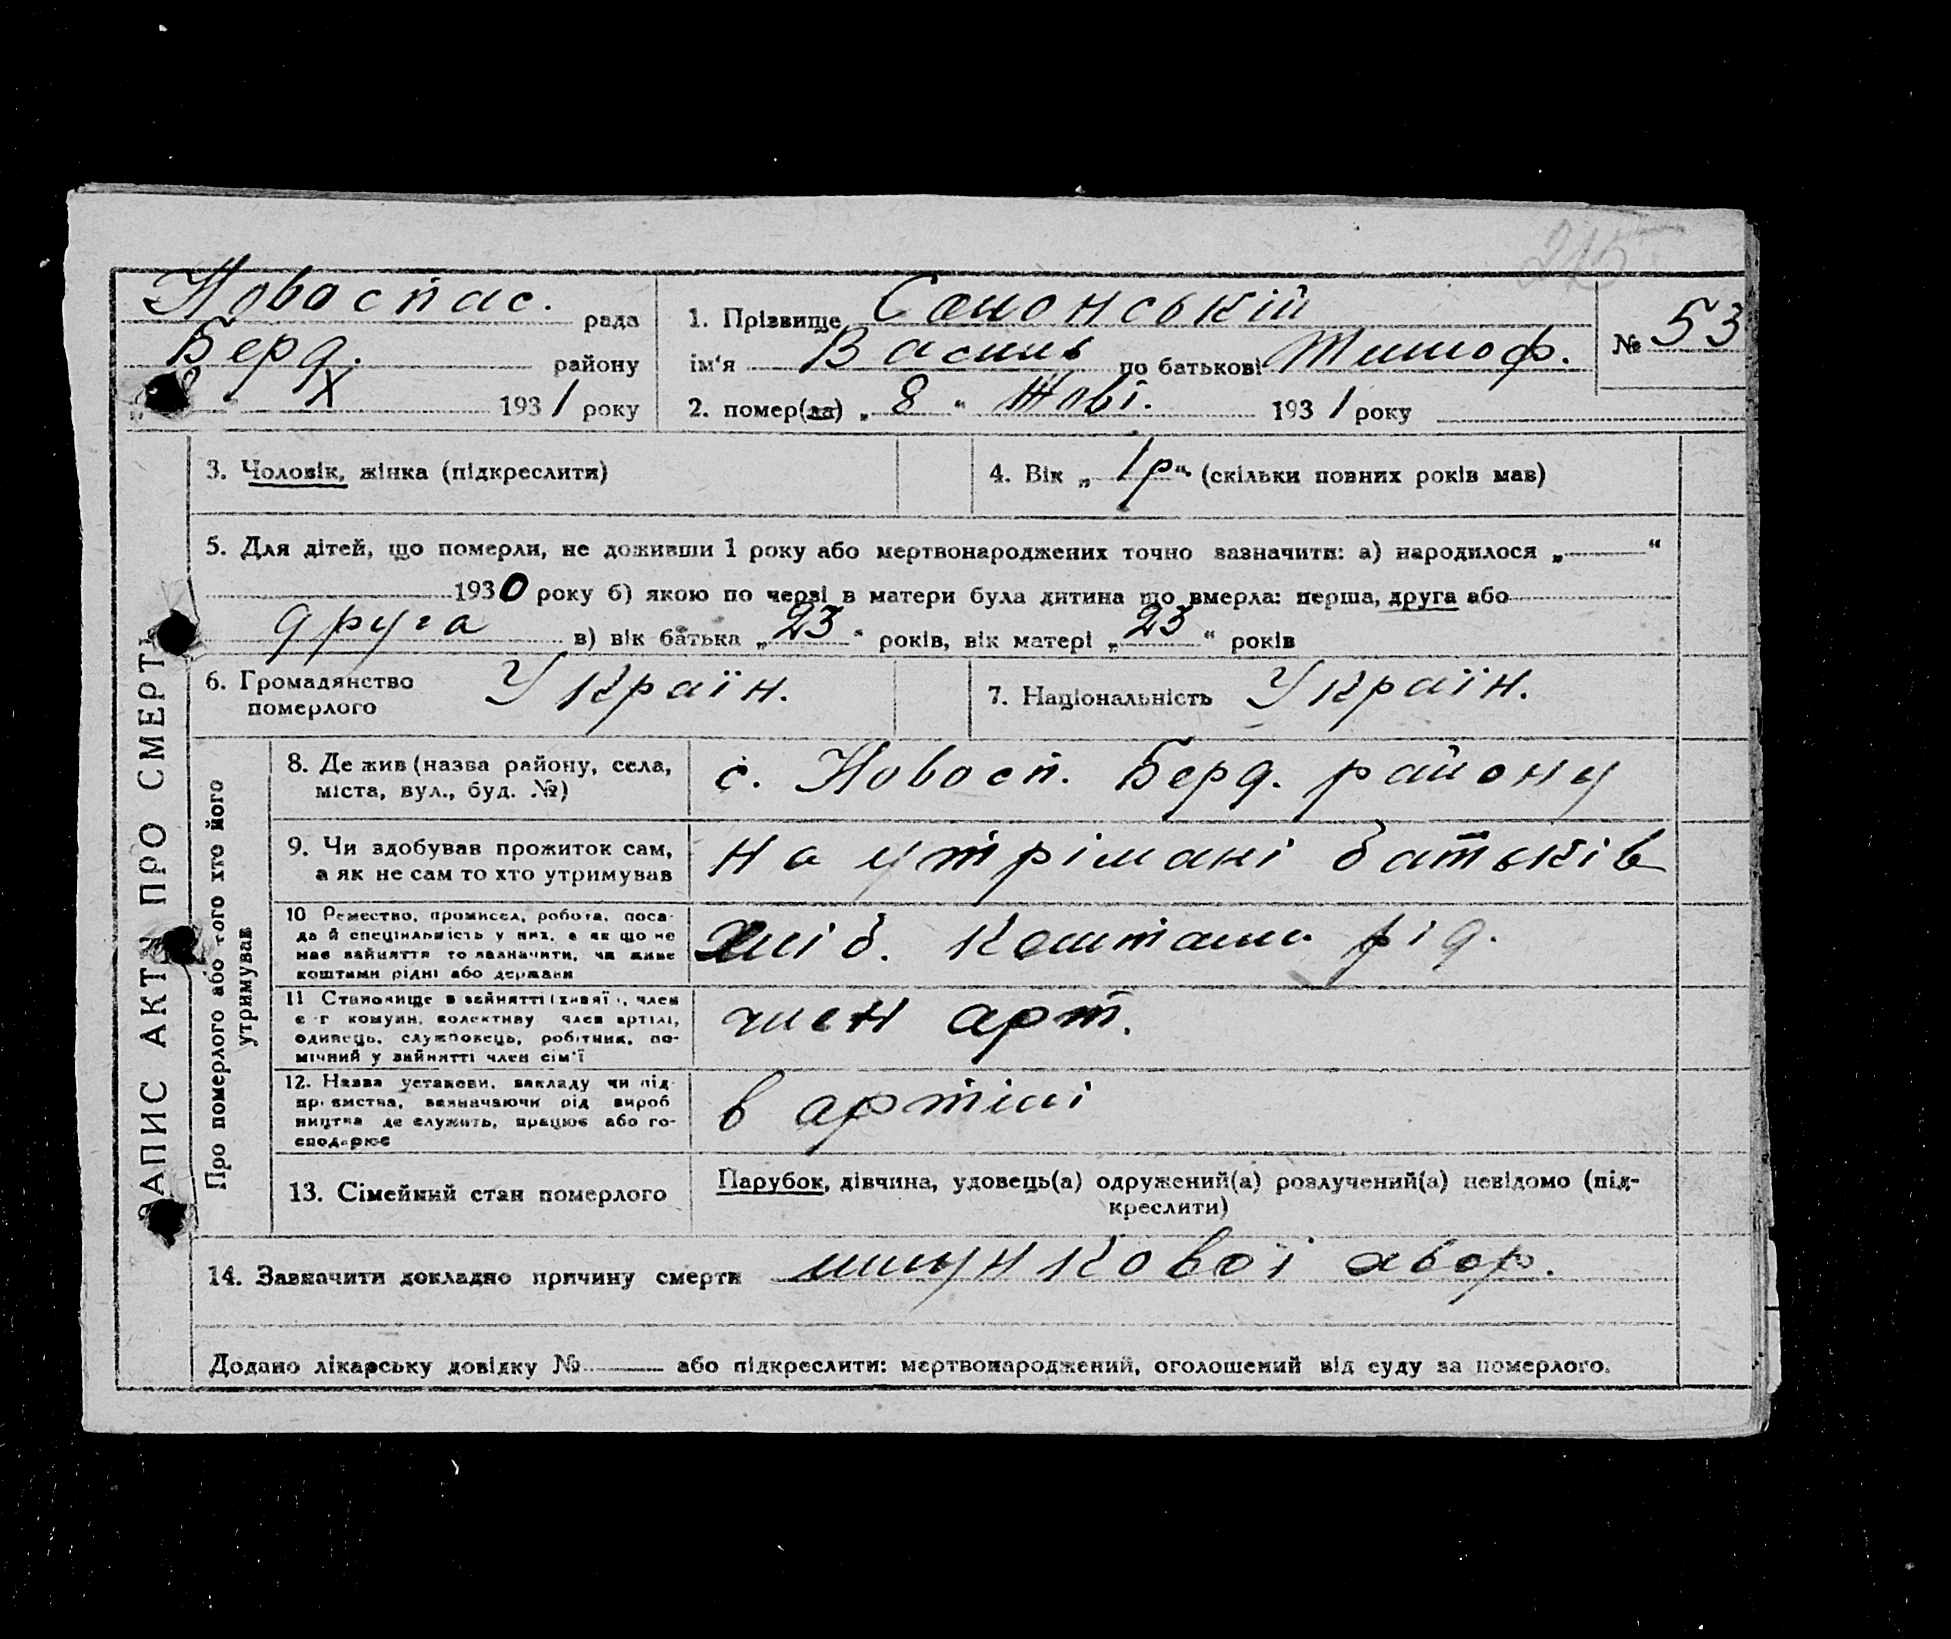 215
Новоспас. рада
Берд. району
„8" X 1931 року
1. Прізвище Самонський
ім'я Василь по батькові Тимоф.
2. помер(ла) „8" Жовт. 1931 року
№ 53
ЗАПИС АКТУ ПРО СМЕРТЬ
3. Чоловік, жінка (підкреслити)
4. Вік „1р" (скільки повних років мав)
5. Для дітей, що померли, не доживши 1 року або мертвонароджених точно зазначити: а) народилося „—"
1930 року б) якою по черзі в матери була дитина що вмерла: перша, друга або
друга в) вік батька „23" років, вік матері „23" років
6. Громадянство
померлого Україн.
7. Національність Україн.
Про померлого або того хто його
утримував
8. Де жив (назва району, села,
міста, вул., буд. №)
с. Новосп. Берд. району
9. Чи здобував прожиток сам,
а як не сам то хто утримував
на утрімані батьків
10 Ремество, промисел, робота, поса-
да й спеціяльність у них, а як що не
має зайняття то зазначити, чи живе
коштами рідні або держави
хліб. коштами рід.
11 Становище в зайнятті (хазяї, член
с-г комуни, колективу член артілі,
одинець, службовець, робітник, по-
мічний у зайнятті член сім'ї
член арт.
12. Назва установи, закладу чи під-
приємства, зазначаючи рід вироб
ництва де служить, працює або го-
сподарює
в артілі
13. Сімейний стан померлого
Парубок, дівчина, удовець(а) одружений(а) розлучений(а) невідомо (під-
креслити)
14. Зазначити докладно причину смерти шлункової хвор.
Додано лікарську довідку №— або підкреслити: мертвонароджений, оголошений від суду за померлого.